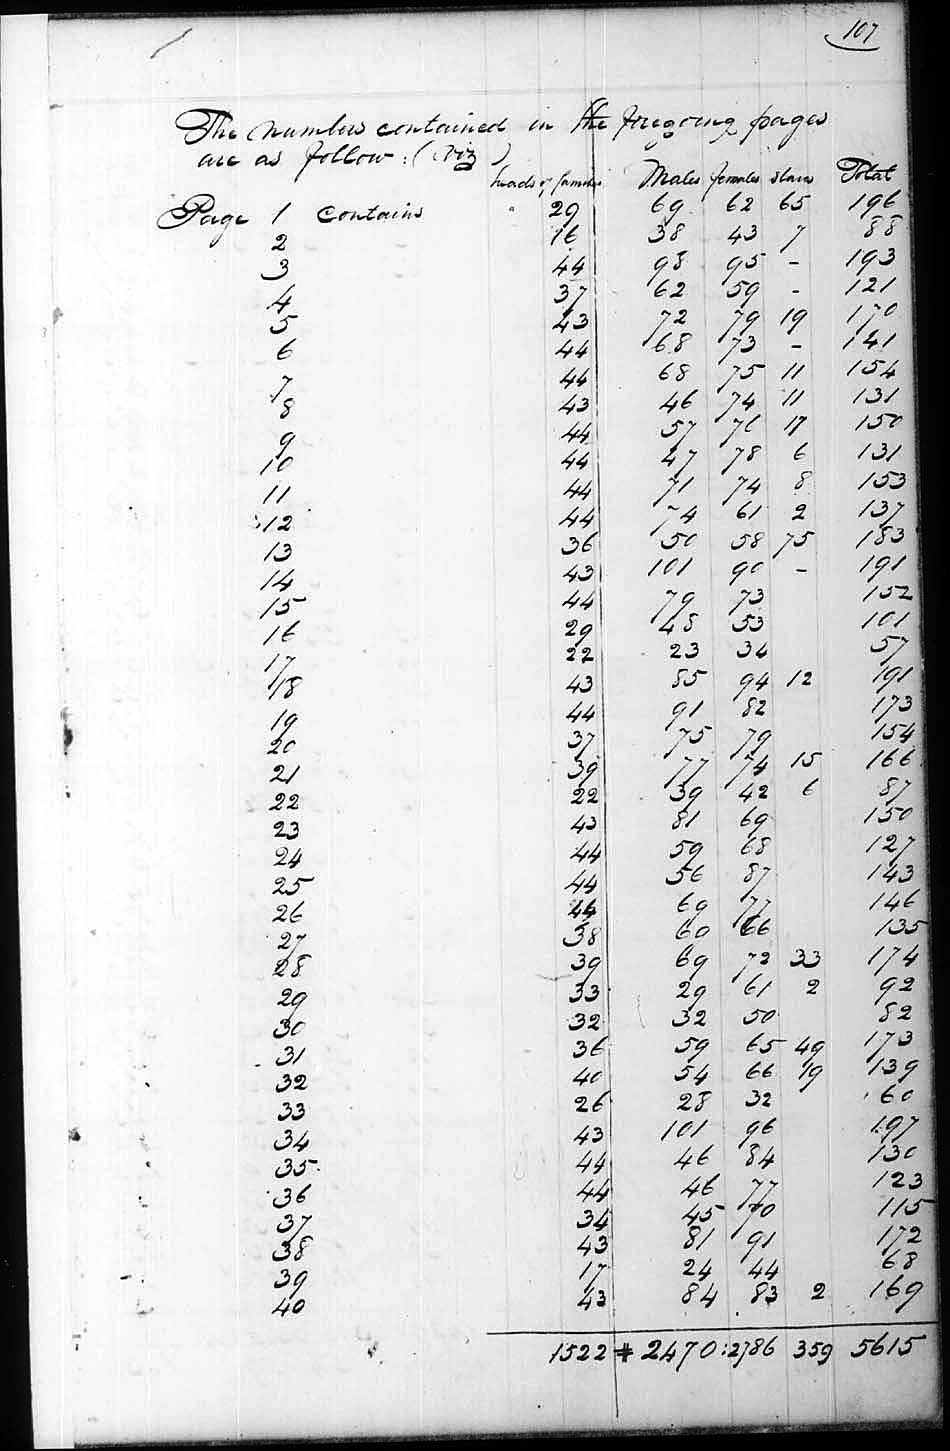 107
The numbers contained in the foregoing pages
are as follow: (viz)
heads of families Males females slaves Total
Page 1 contains " 29 69 62 65 196
2 16 38 43 7 88
3 44 98 95 - 193
4 37 62 59 - 121
5 43 72 79 19 170
6 44 68 73 - 141
7 44 68 75 11 154
8 43 46 74 11 131
9 44 57 76 17 150
10 44 47 78 6 131
11 44 71 74 8 153
12 44 74 61 2 137
13 36 50 58 75 183
14 43 101 90 - 191
15 44 79 73 152
16 29 48 53 101
17 22 23 34 57
18 43 85 94 12 191
19 44 91 82 173
20 37 75 79 154
21 39 77 74 15 166
22 22 39 42 6 87
23 43 81 69 150
24 44 59 68 127
25 44 56 87 143
26 44 69 77 146
27 38 60 66 135
28 39 69 72 33 174
29 33 29 61 2 92
30 32 32 50 82
31 36 59 65 49 173
32 40 54 66 19 139
33 26 28 32 60
34 43 101 96 197
35 44 46 84 130
36 44 46 77 123
37 34 45 70 115
38 43 81 91 172
39 17 24 44 68
40 43 84 83 2 169
1522 # 2470 : 2786 359 5615